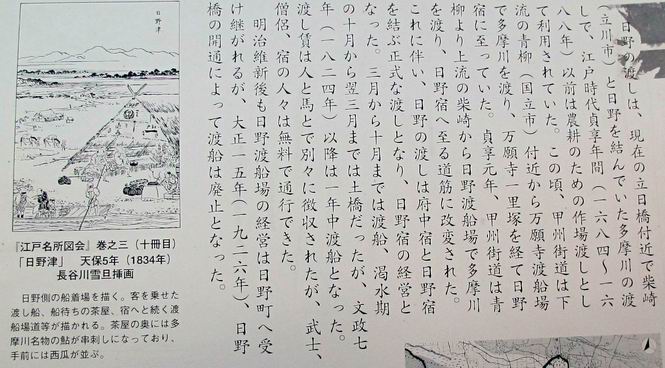 日野の渡しは、現在の立日橋付近で柴崎
（立川市）と日野を結んでいた多摩川の渡
しで、江戸時代貞享年間（一六八四～一六
八八年）以前は農耕のための作場渡しとし
て利用されていた。この頃、甲州街道は下
流の青柳（国立市）付近から万願寺渡船場
で多摩川を渡り、万願寺一里塚を経て日野
宿に至っていた。貞享元年、甲州街道は青
柳より上流の柴崎から日野渡船場で多摩川
を渡り、日野宿へ至る道筋に改変された。
これに伴い、日野の渡しは府中宿と日野宿
を結ぶ正式な渡しとなり、日野宿の経営と
なった。三月から十月までは渡船、渇水期
の十月から翌三月までは土橋だったが、文政七
年（一八二四年）以降は一年中渡船となった。
渡し賃は人と馬とで別々に徴収されたが、武士、
僧侶、宿の人々は無料で通行できた。
明治維新後も日野渡船場の経営は日野町へ受
け継がれるが、大正一五年（一九二六年）、日野
橋の開通によって渡船は廃止となった。
日野津
『江戸名所図会』巻之三（十冊目）
「日野津」 天保5年（1834年）
長谷川雪旦挿画
日野側の船着場を描く。客を乗せた
渡し船、船待ちの茶屋、宿へと続く渡
船場道等が描かれる。茶屋の奥には多
摩川名物の鮎が串刺しになっており、
手前には西瓜が並ぶ。